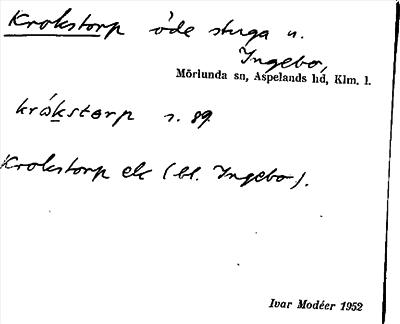 Krokstorp öde stuga u.
Ingebo,
Mörlunda sn, Aspelands hd, Klm. l.
kråkstorp s. 89.
Krokstorp ek (bl. Ingebo).
Ivar Modéer 1952